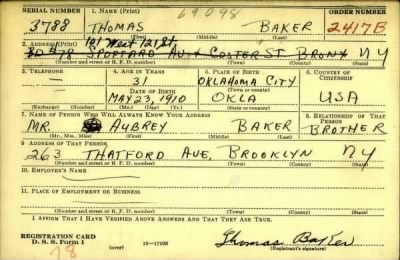 SERIAL NUMBER 1. NAME (Print) 69098 ORDER NUMBER
3788 THOMAS BAKER 2417B
(First) (Middle) (Last)
2. ADDRESS (Print) 151 West 121 St
78 STORTARD AV + COSTER ST BRONX NY
(Number and street or R. F. D. number) (Town) (County) (State)
3. TELEPHONE 4. AGE IN YEARS 5. PLACE OF BIRTH 6. COUNTRY OF CITIZENSHIP
31 OKLAHOMA CITY
DATE OF BIRTH (Town or county)
MAY 23, 1910 OKLA USA
(Exchange) (Number) (Mo.) (Day) (Yr.) (State or country)
7. NAME OF PERSON WHO WILL ALWAYS KNOW YOUR ADDRESS 8. RELATIONSHIP OF THAT PERSON
MR. AUBREY BAKER BROTHER
(Mr., Mrs., Miss) (First) (Middle) (Last)
9. ADDRESS OF THAT PERSON
263 THATFORD AVE. BROOKLYN NY
(Number and street or R. F. D. number) (Town) (County) (State)
10. EMPLOYER'S NAME
11. PLACE OF EMPLOYMENT OR BUSINESS
(Number and street or R. F. D. number) (Town) (County) (State)
I AFFIRM THAT I HAVE VERIFIED ABOVE ANSWERS AND THAT THEY ARE TRUE.
REGISTRATION CARD
D. S. S. Form 1 (over) 16—17105 Thomas Baker
78 (Registrant's signature)